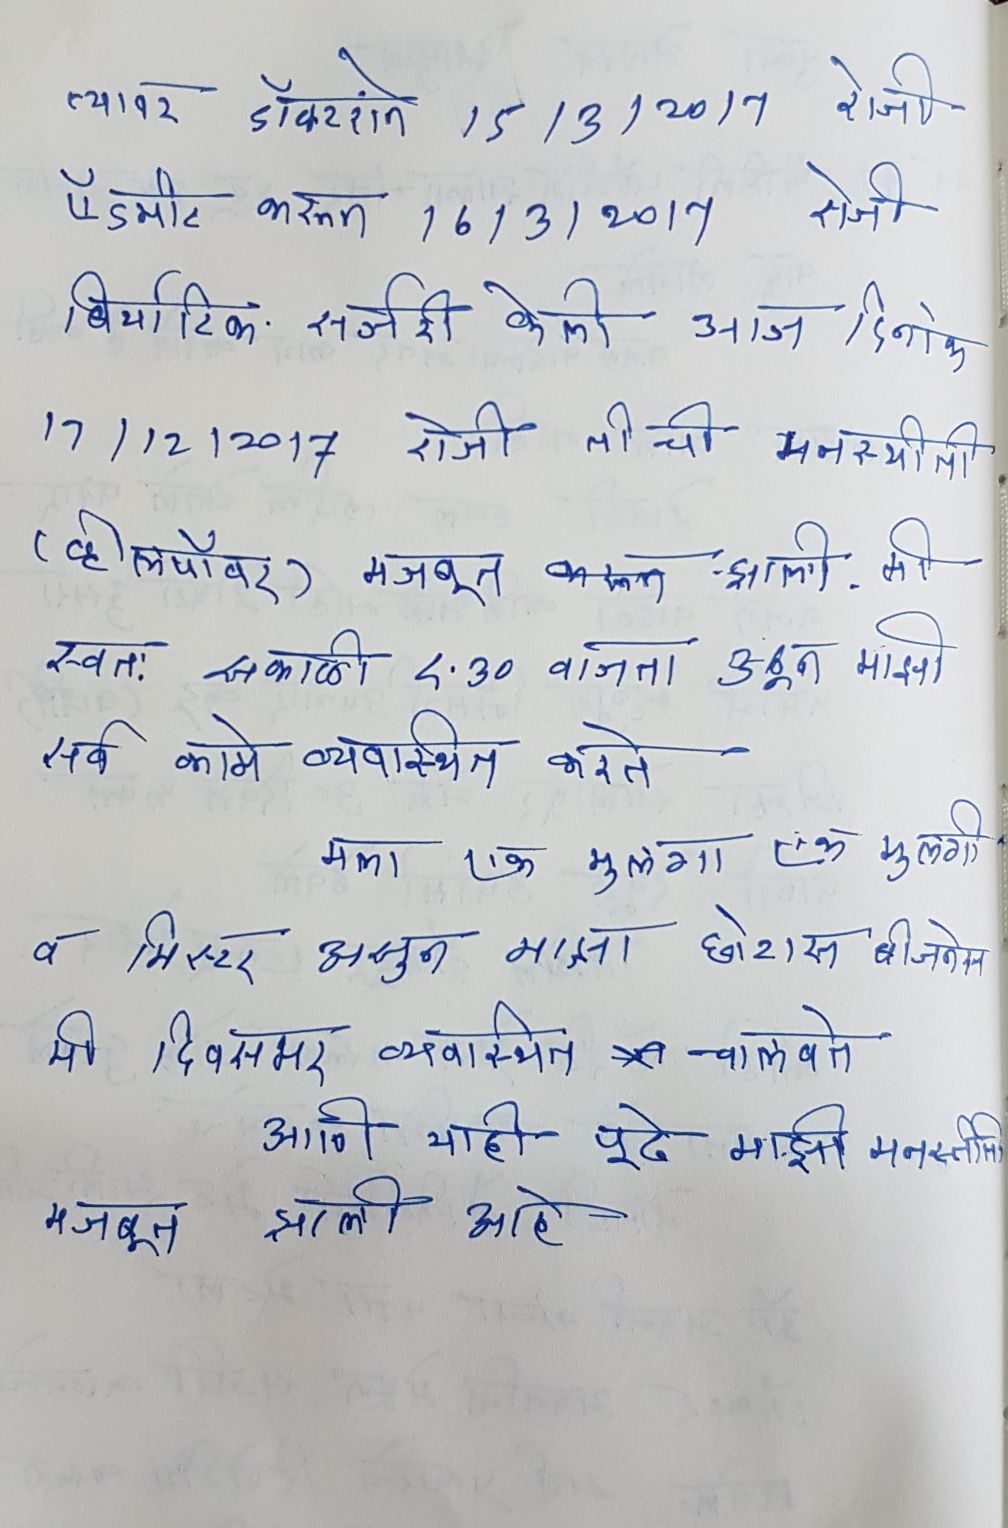 त्यावर डॉक्टरांने 15/3/2017 रोजी
ॲडमीट करून 16/3/2017 रोजी
बॅर्याटिक सर्जरी केली आज दिनांक
17/12/2017 रोजी तीची मनस्थीती
(व्हीलपॉवर) मजबूत झाली. मी
स्वतः सकाळी ८.30 वाजता उठून माझी
सर्व कामे व्यवास्थित करते
मला एक मुलगा एक मुलगी
व मिस्टर असुन माझा छोटास बीजनेस
मी दिवसभर व्यवास्थित चालवते
आणि याही पूढे माझी मनस्तीती
मजबूत झाली आहे